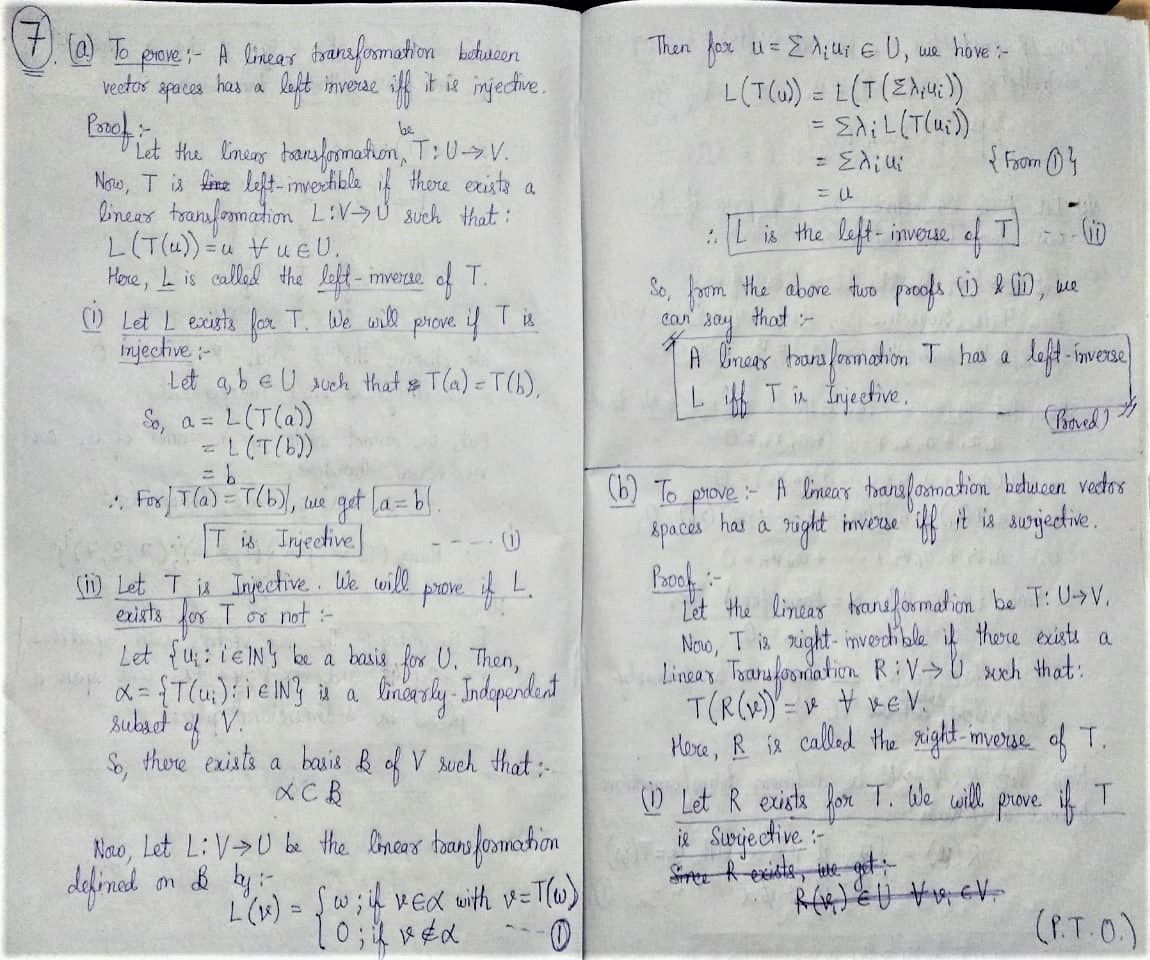 7. (a) To prove :- A linear transformation between
vector spaces has a left inverse iff it is injective.
Proof :-
Let the linear transformation be T : U → V.
Now, T is line left-invertible if there exists a
linear transformation L : V → U such that :
L(T(u)) = u ∀ u ∈ U.
Here, L is called the left-inverse of T.
(i) Let L exists for T. We will prove if T is
injective :-
Let a, b ∈ U such that T(a) = T(b).
So, a = L(T(a))
= L(T(b))
= b
∴ For T(a) = T(b), we get a = b
T is Injective ---- (i)
(ii) Let T is Injective. We will prove if L
exists for T or not :-
Let {uᵢ : i ∈ ℕ} be a basis for U. Then,
α = {T(uᵢ) : i ∈ ℕ} is a linearly-Independent
subset of V.
So, there exists a basis B of V such that :-
α ⊂ B
Now, Let L : V → U be the linear transformation
defined on B by :-
L(v) = { w ; if v ∈ α with v = T(w)
0 ; if v ∉ α ---- ①
Then for u = Σ λᵢuᵢ ∈ U, we have :-
L(T(u)) = L(T(Σλᵢuᵢ))
= Σλᵢ L(T(uᵢ))
= Σλᵢ uᵢ {From ①}
= u
∴ L is the left-inverse of T ---- (ii)
So, from the above two proofs (i) & (ii), we
can say that :-
A linear transformation T has a left-inverse
L iff T is Injective.
(Proved)
(b) To prove :- A linear transformation between vector
spaces has a right inverse iff it is surjective.
Proof :-
Let the linear transformation be T : U → V.
Now, T is right-invertible if there exists a
Linear Transformation R : V → U such that :
T(R(v)) = v ∀ v ∈ V.
Here, R is called the right-inverse of T.
(i) Let R exists for T. We will prove if T
is Surjective :-
Since R exists, we get :-
R(vᵢ) ∈ U ∀ vᵢ ∈ V.
(P.T.O.)